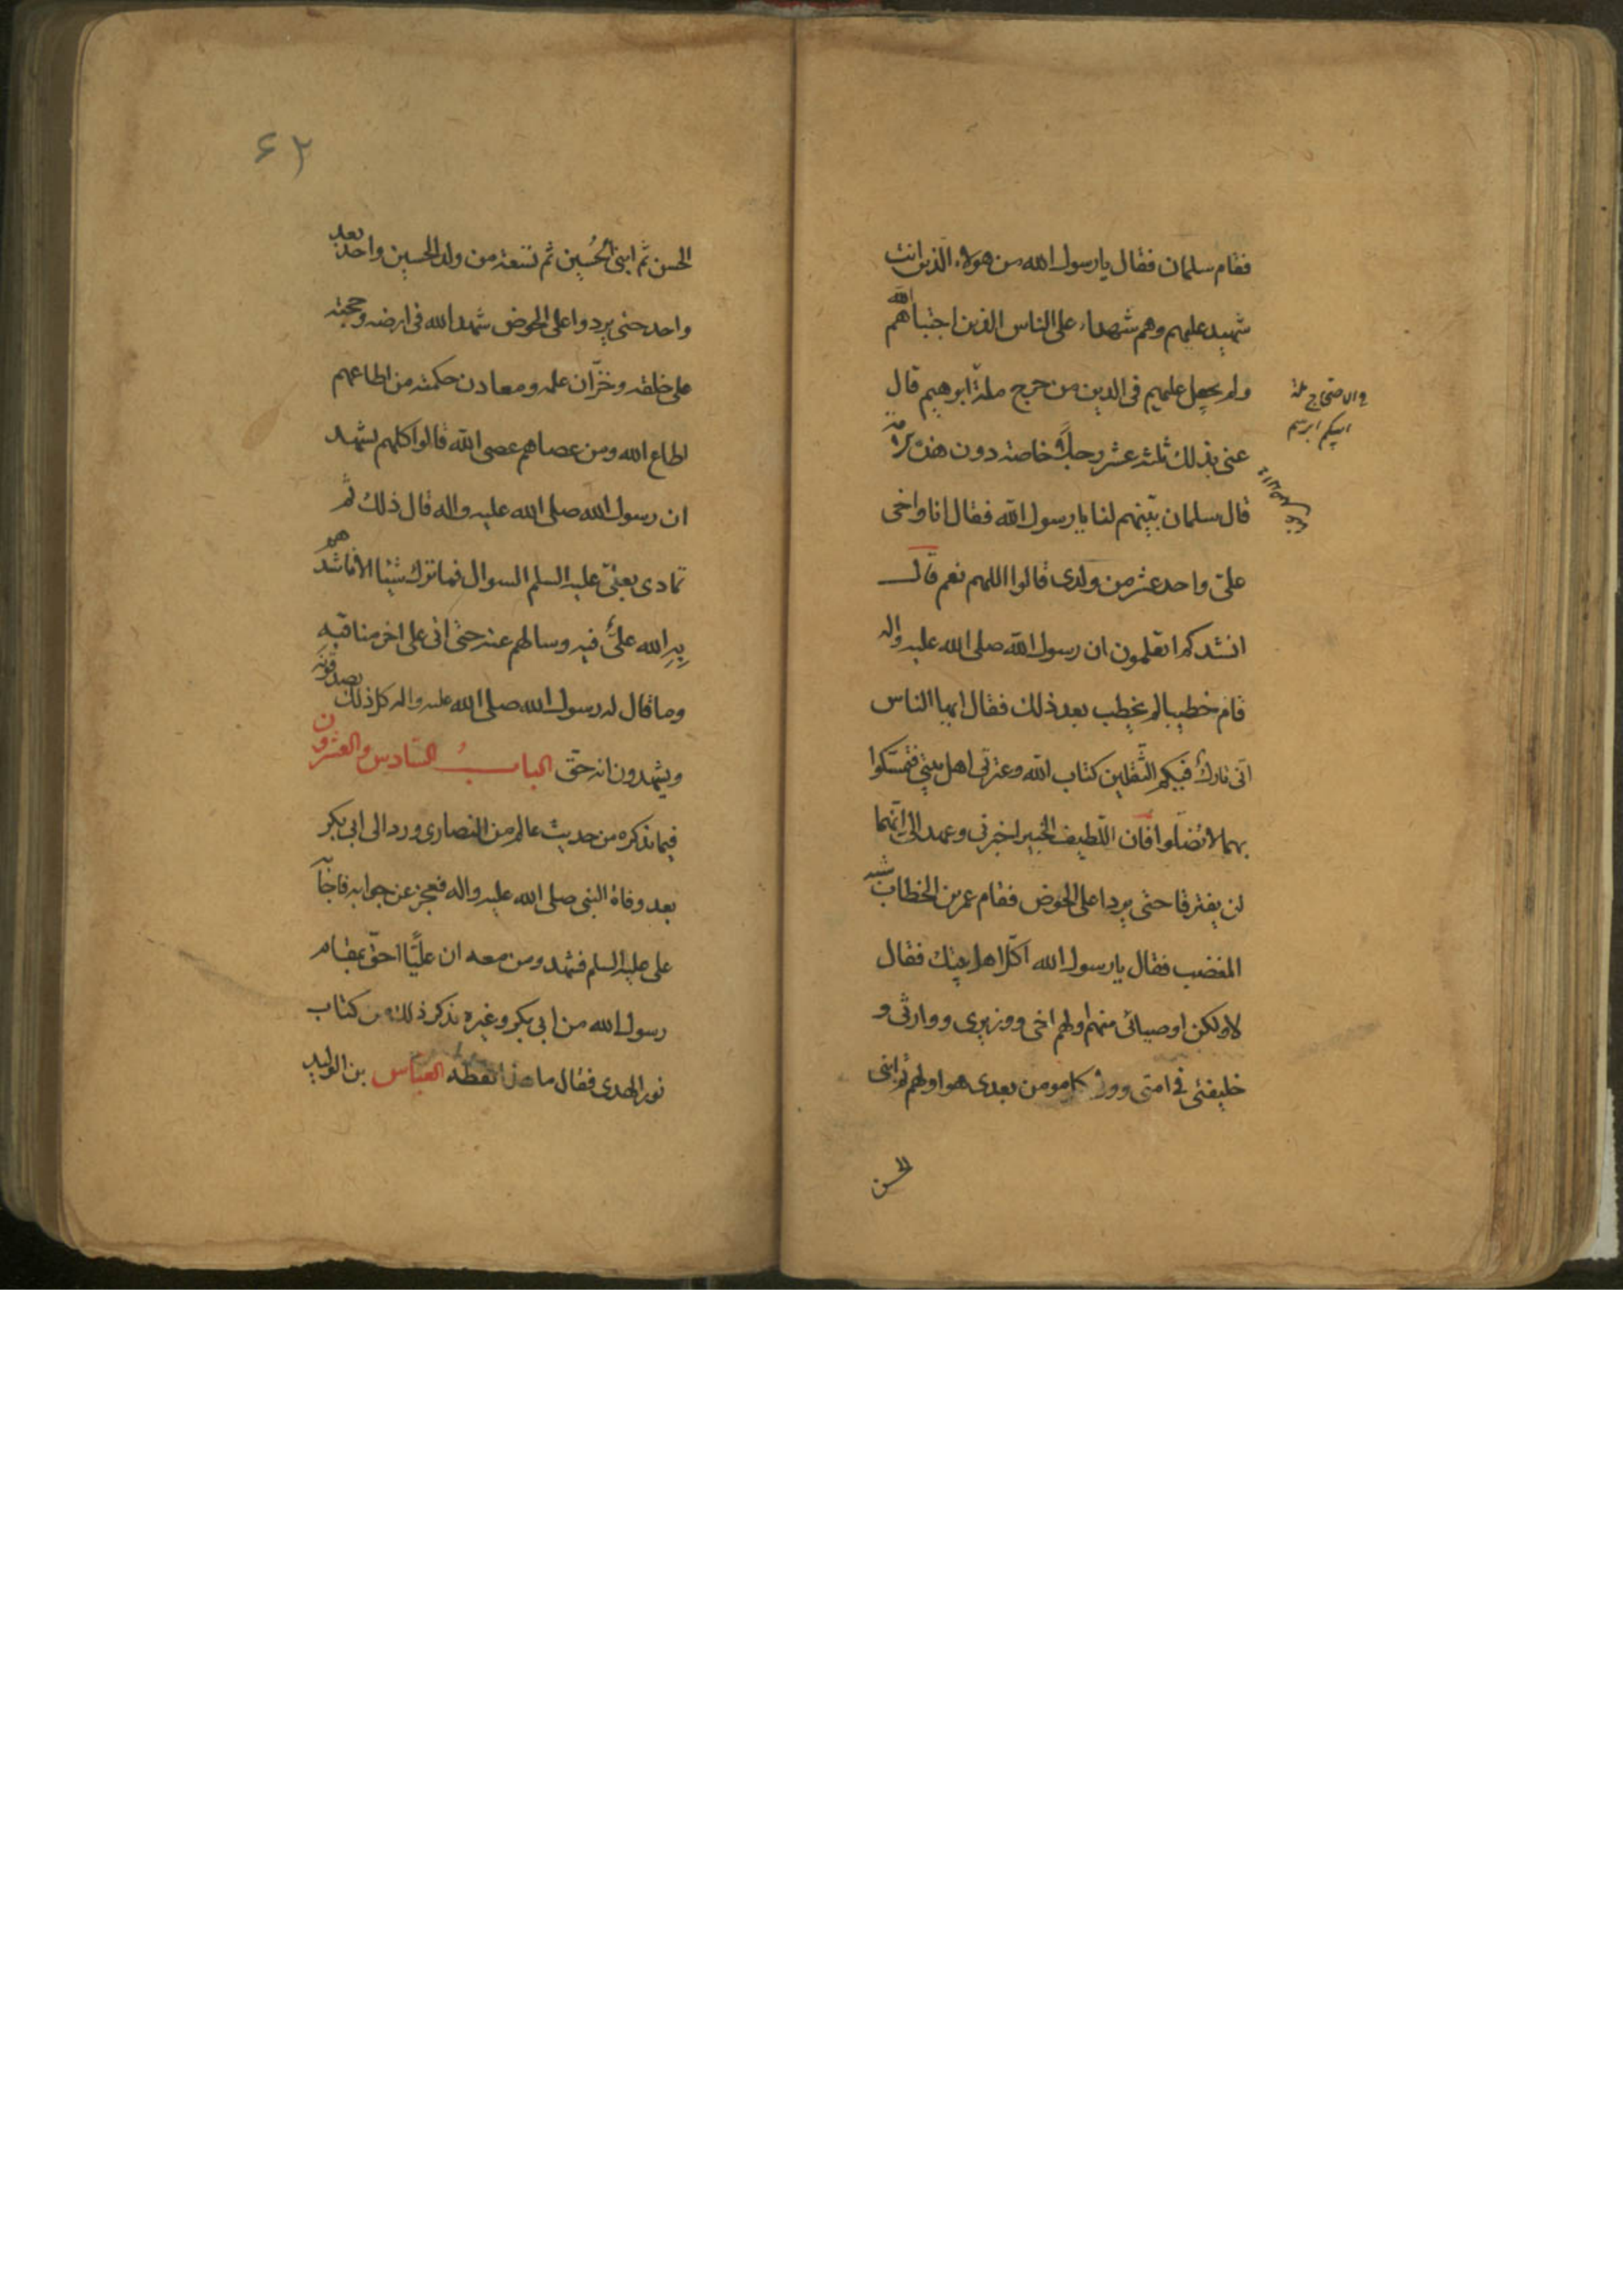 فقام سلمان فقال يا رسول الله من هولاء الذين انت
شهيد عليهم وهم شهداء على الناس الذين اجتباهم الله
ولم يجعل عليهم فى الدين من حرج ملة ابرهيم قال
عنى بذلك ثلثه عشر رجلا خاصة دون هذه الامة
قال سلمان بينهم لنا يا رسول الله فقال انا واخى
على واحد عشر من ولدى قالوا اللهم نعم قال
انشدكم اتعلمون ان رسول الله صلى الله عليه واله
قام خطيبا لم يخطب بعد ذلك فقال ايها الناس
انى تارك فيكم الثقلين كتاب الله وعترتى اهل بيتى فتمسكوا
بهما لا تضلوا فان اللطيف الخبير اخبرنى وعهد الى انهما
لن يفترقا حتى يردا على الحوض فقام عمر بن الخطاب شبه
المغضب فقال يا رسول الله اكل اهل بيتك فقال
لا ولكن اوصيائى منهم اولهم اخى ووزيرى ووارثى و
خليفتى فى امتى وولى كل مومن بعدى هو اولهم ثم ابنى
الحسن
ملة
ابيكم ابرهيم
۶۲
الحسن ثم ابنى الحُسين ثم تسعة من ولد الحسين واحد بعد
واحد حتى يردوا على الحوض شهد الله فى ارضه وحجته
على خلقه وخزّان علمه ومعادن حكمته من اطاعهم
اطاع الله ومن عصاهم عصى الله قالوا كلهم نشهد
ان رسول الله صلى الله عليه واله قال ذلك ثم
تمادى بعلىّ عليه السلم السوال فما ترك شيئا الا ناشدهم
الله علىٌّ فيه وسالهم عنه حتى اتى على اخر مناقبه
وما قال له رسول الله صلى الله عليه واله كل ذلك يصدقونه
ويشهدون انه حق البابُ السّادس والعشرون
فيما نذكره من حديث عالم من النصارى ورد الى ابى بكر
بعد وفاة النبى صلى الله عليه واله فعجز عن جوابه فاجابه
على عليه السلم فشهد ومن معه ان عليّا احقّ بمقام
رسول الله من ابى بكر وغيره نذكر ذلك من كتاب
نور الهدى فقال ما هذا لفظه العباس بن الوليد